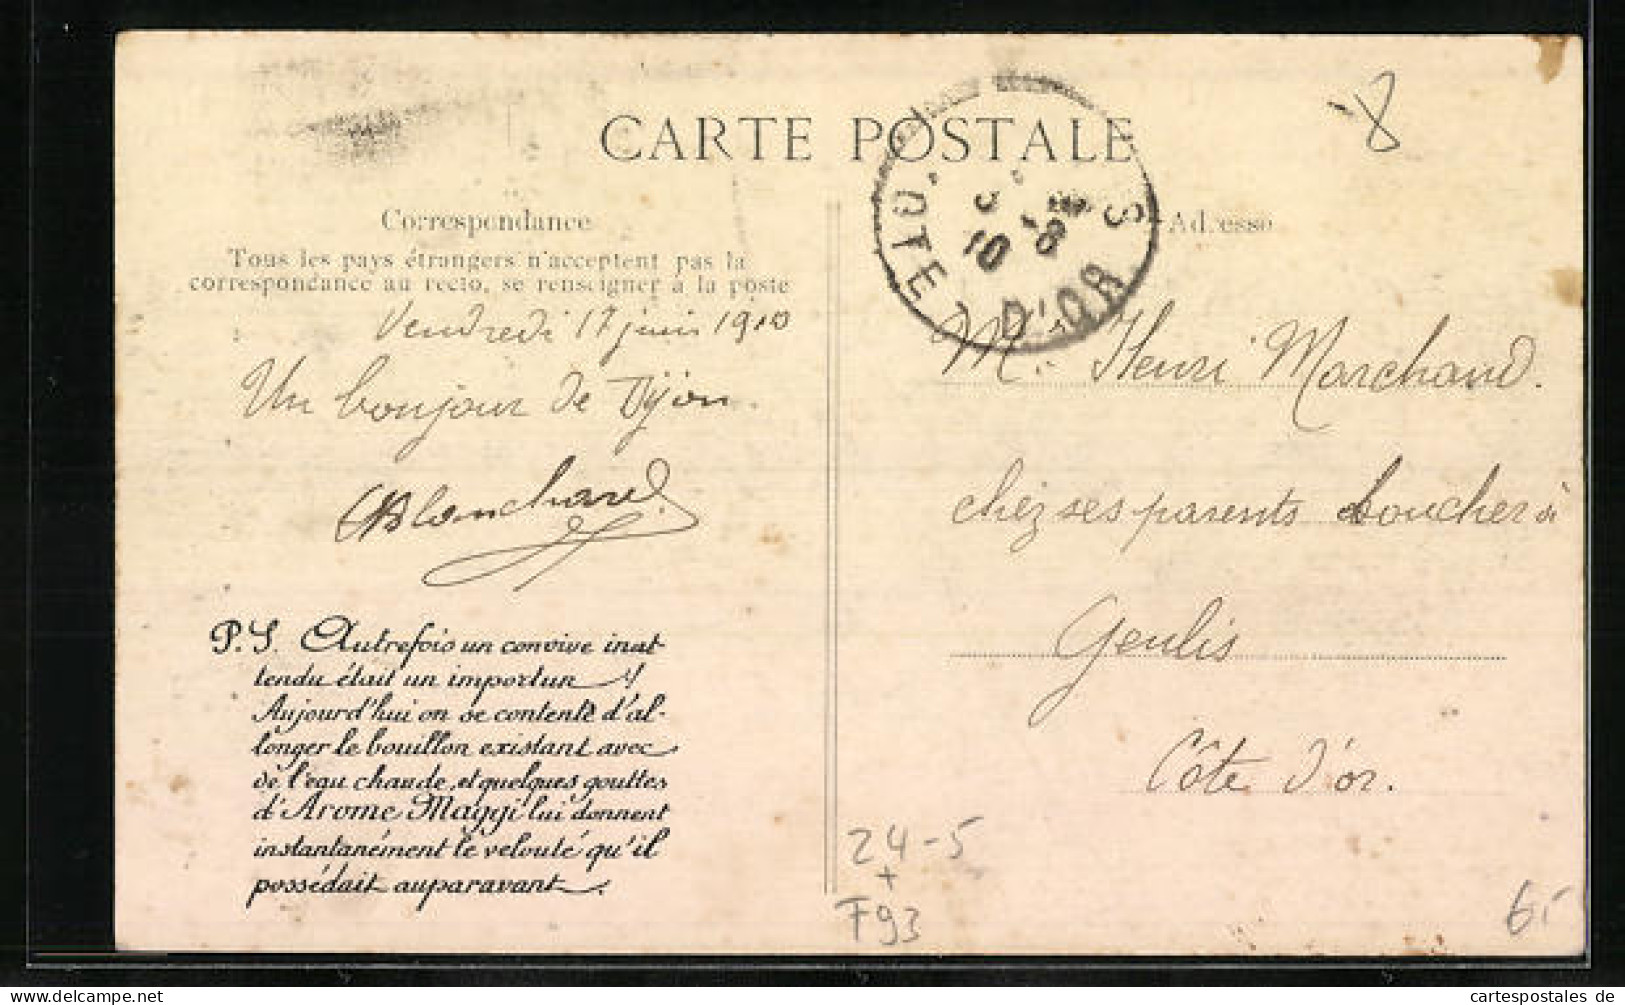 CARTE POSTALE
8
Correspondance
Tous les pays étrangers n'acceptent pas la
correspondance au recto, se renseigner à la poste
Vendredi 17 juin 1910
Un bonjour de Dijon.
Blanchard
P.S. Autrefois un convive inat-
tendu était un importun
Aujourd'hui on se contente d'al-
longer le bouillon existant avec
de l'eau chaude, et quelques gouttes
d'Arome Maggi lui donnent
instantanément le velouté qu'il
possédait auparavant.
COTE D'OR
10
Adresse
Mr Henri Marchand.
chez ses parents boucher à
Genlis
Côte d'or.
24-5
+
F93
6.-
www.cartespostales.de